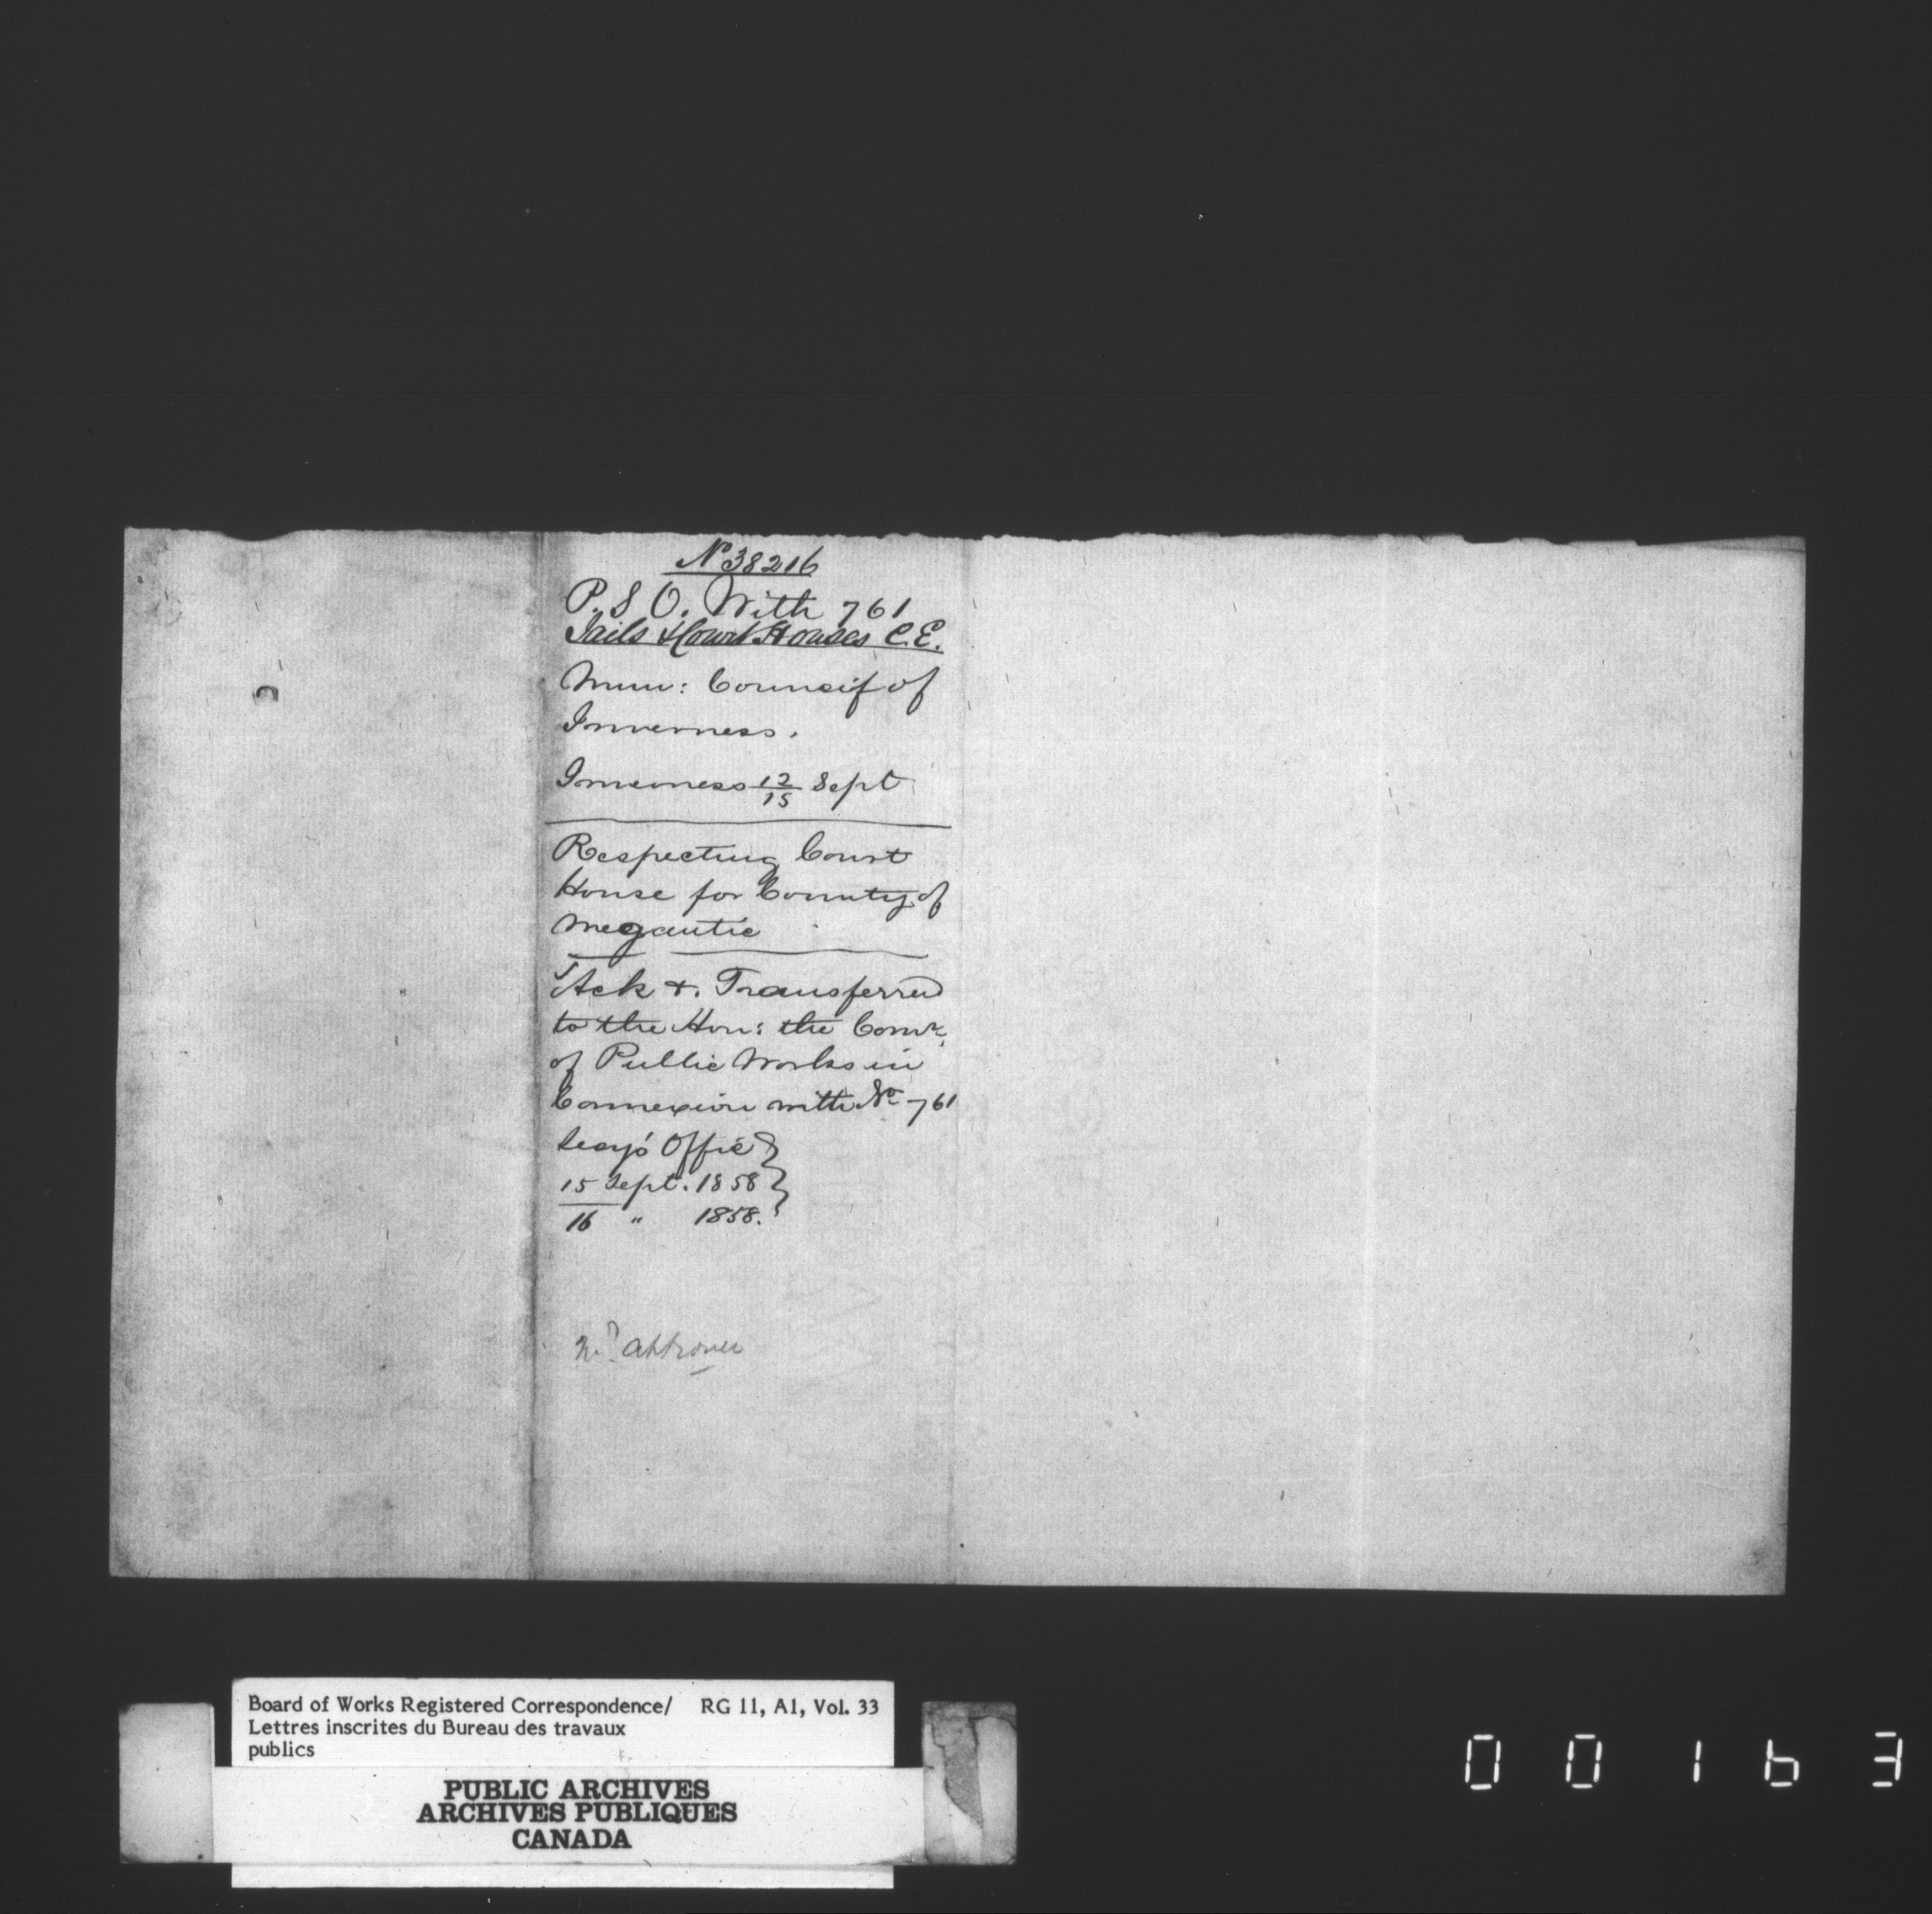 No 38216
P. S O. With 761
Jails & Court Houses C.E.
Mun: Council of
Inverness.
Inverness 12/15 Sept
Respecting Court
House for County of
Megantic
Ack & Transferred
to the Hon: the Comr
of Public Works in
Connexion with No 761
Secy's Office
15 Sept. 1858
16 " 1858.
Board of Works Registered Correspondence/ RG 11, A1, Vol. 33
Lettres inscrites du Bureau des travaux
publics
PUBLIC ARCHIVES
ARCHIVES PUBLIQUES
CANADA
00163